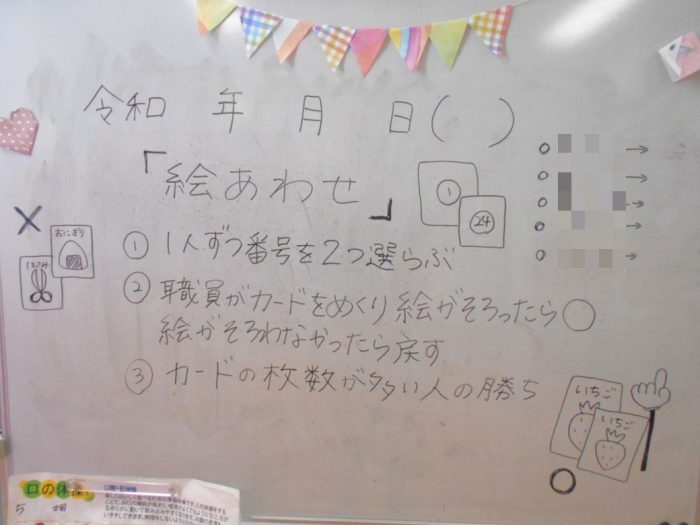 令和 年 月 日( )
「絵あわせ」
① 1人ずつ番号を2つ選らぶ
② 職員がカードをめくり絵がそろったら○
絵がそろわなかったら戻す
③ カードの枚数が多い人の勝ち
①
24
×
おにぎり
はさみ
いちご
いちご
○
口の体操